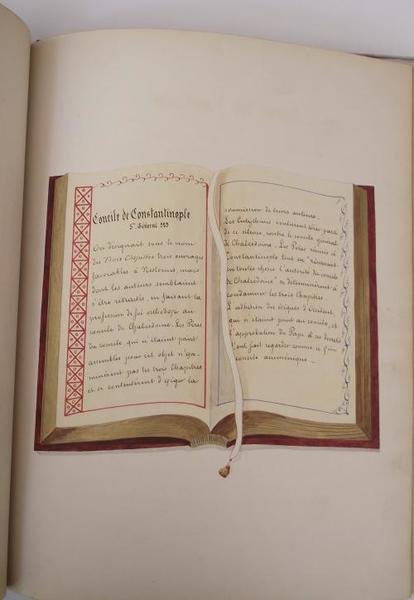 Concile de Constantinople
5e Général 553
On désignait sous le nom
des Trois Chapitres trois ouvrages
favorables à Nestorius, mais
dont les auteurs semblaient
s'être rétractés, en faisant la
profession de foi orthodoxe au
concile de Chalcédoine. Les Pères
du concile, qui n'étaient point
assemblés pour cet objet n'exa-
minèrent pas les trois Chapitres
et se contentèrent d'exiger la
soumission de leurs auteurs.
Les Eutychiens voulurent tirer parti
de ce silence contre le concile général
de Chalcédoine. Les Pères réunis à
Constantinople tout en "réservant
en toutes choses l'autorité du concile
de Chalcédoine" se déterminèrent à
condamner les trois Chapitres
L'adhésion des évêques d'Occident
qui n'étaient point au concile, et
l'approbation du Pape à ses décrets
l'ont fait regarder comme le 5me
concile œcuménique.